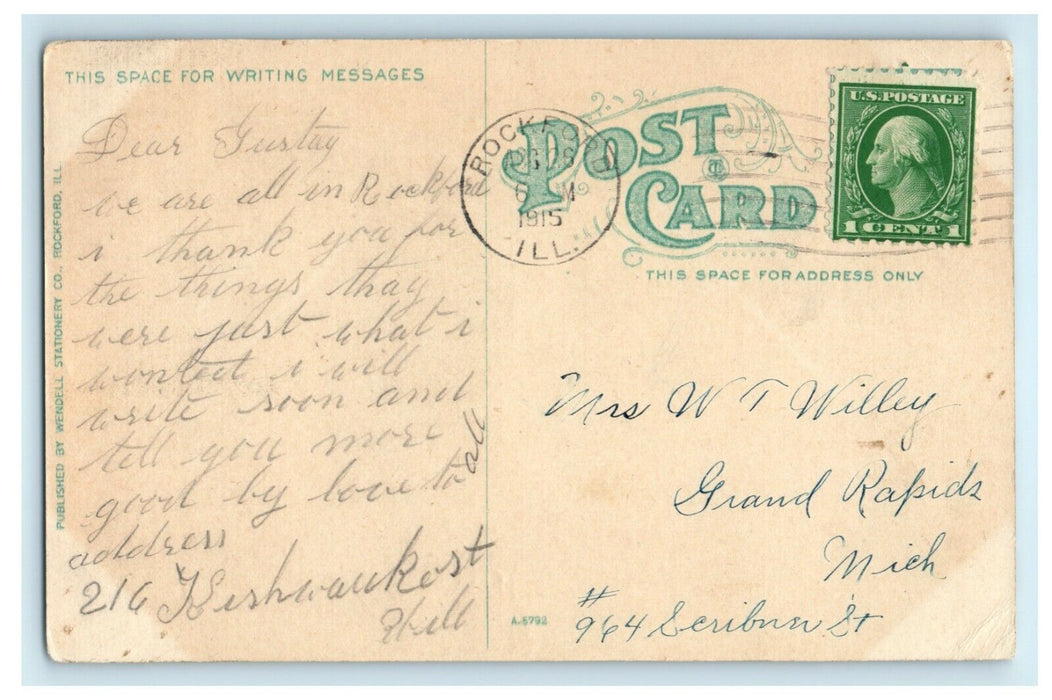 THIS SPACE FOR WRITING MESSAGES
Dear Gustay
we are all in Rockford
i thank you for
the things thay
were just what i
wonted i will
write soon and
tell you more
good by love to all
address
216 Kishwauke st
Ill
PUBLISHED BY WENDELL STATIONERY CO., ROCKFORD, ILL
POST CARD
ROCKFORD
1915
ILL.
U.S. POSTAGE
1 CENT 1
THIS SPACE FOR ADDRESS ONLY
Mrs W T Willey
Grand Rapids
Mich
# 964 Scribner St
A-5792